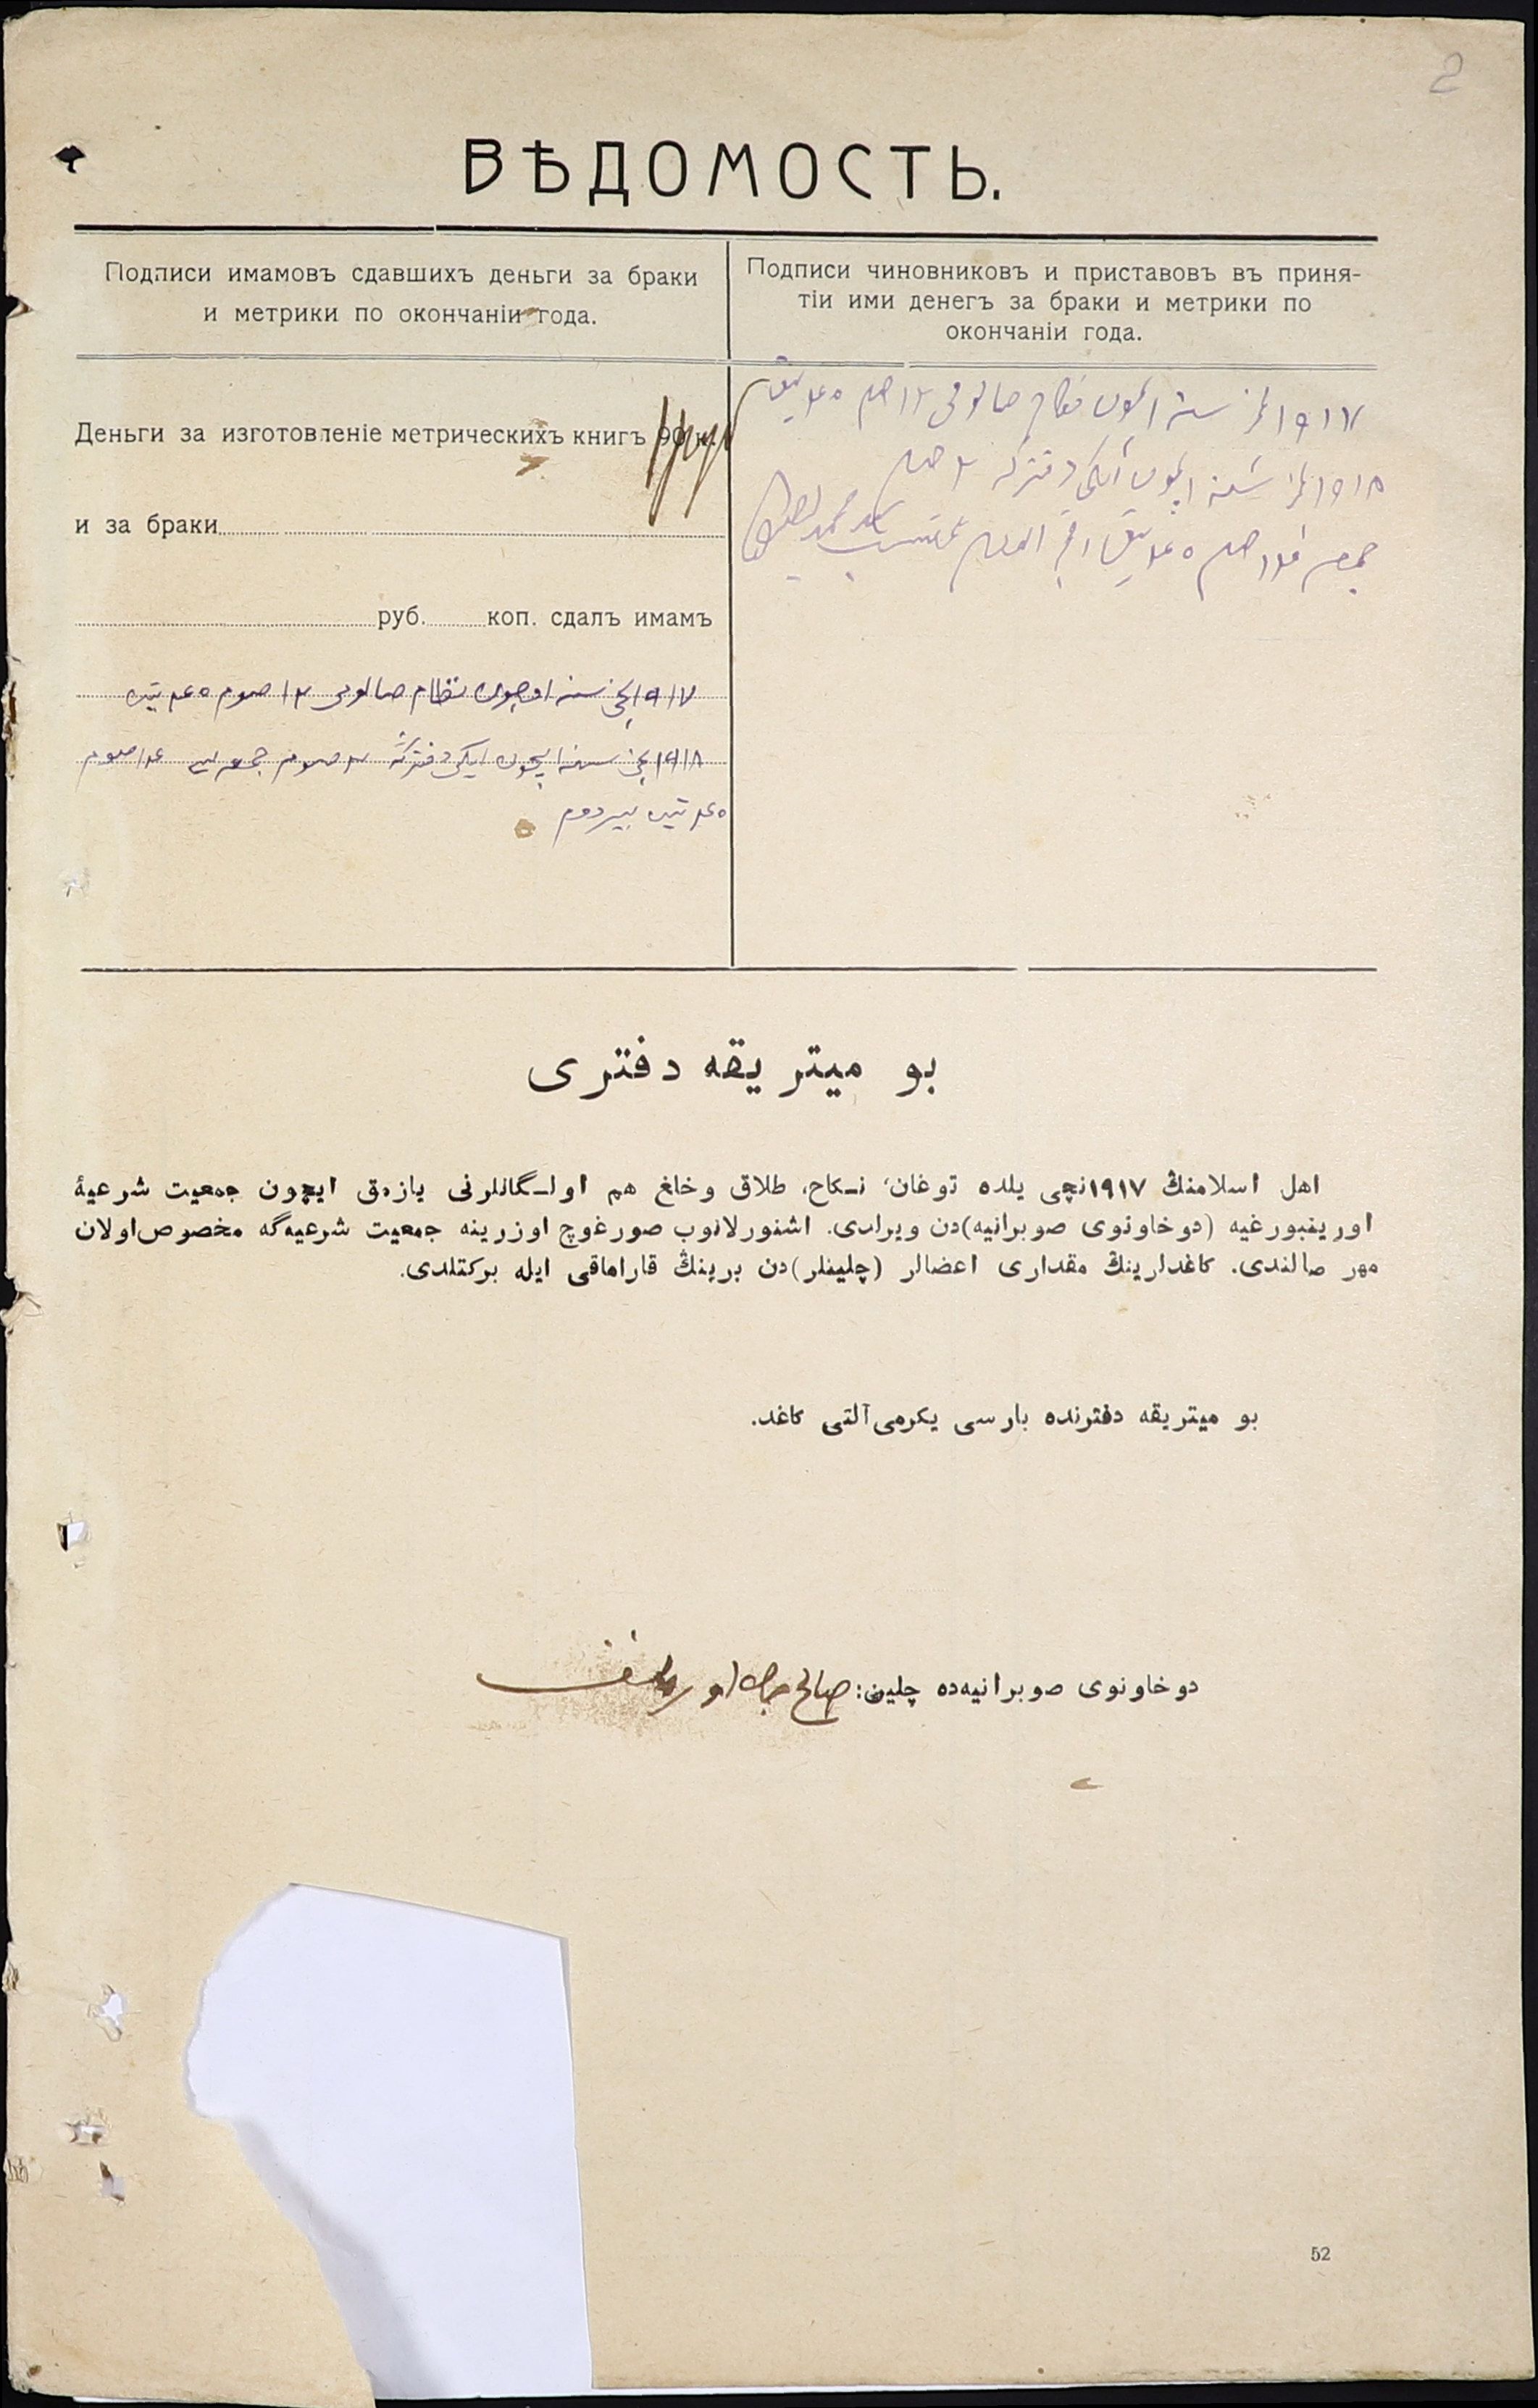 2
ВѢДОМОСТЬ.
Подписи имамовъ сдавшихъ деньги за браки
и метрики по окончаніи года.
Подписи чиновниковъ и приставовъ въ приня-
тіи ими денегъ за браки и метрики по
окончаніи года.
Деньги за изготовленіе метрическихъ книгъ 90 к.
и за браки
руб. коп. сдалъ имамъ
١٩١٧نچی سنه اوچون نظام صالومی ١٢ صوم ٤٥ تین
١٩١٨نچی سنه ایچون ایکی دفترگه ٢ صوم جمعسی ١٤ صوم
٤٥ تین بیردوم
١٩١٧ سنه ایچون صالومی ١٢ صم ٤٥
١٩١٨ سنه ایچون ایکی دفترگه ٢ صم
بو میتریقه دفتری
اهل اسلامنڭ ١٩١٧نچی یلده توغان، نـکاح، طلاق وخلغ هم اولـگانلرنی یازمق ایچون جمعیت شرعیۀ
اورینبورغیه (دوخاونوی صوبرانیه)دن ویرلدی. اشنورلانوب صورغوچ اوزرینه جمعیت شرعیه‌گه مخصوص اولان
مهر صالندی. کاغدلرینڭ مقداری اعضالر (چلینلر)دن برینڭ قاراماقی ایله برکتلدی.
بو میتریقه دفترنده بارسی یکرمی آلتی کاغد.
دوخاونوی صوبرانیه‌ده چلین: صالح جان
52